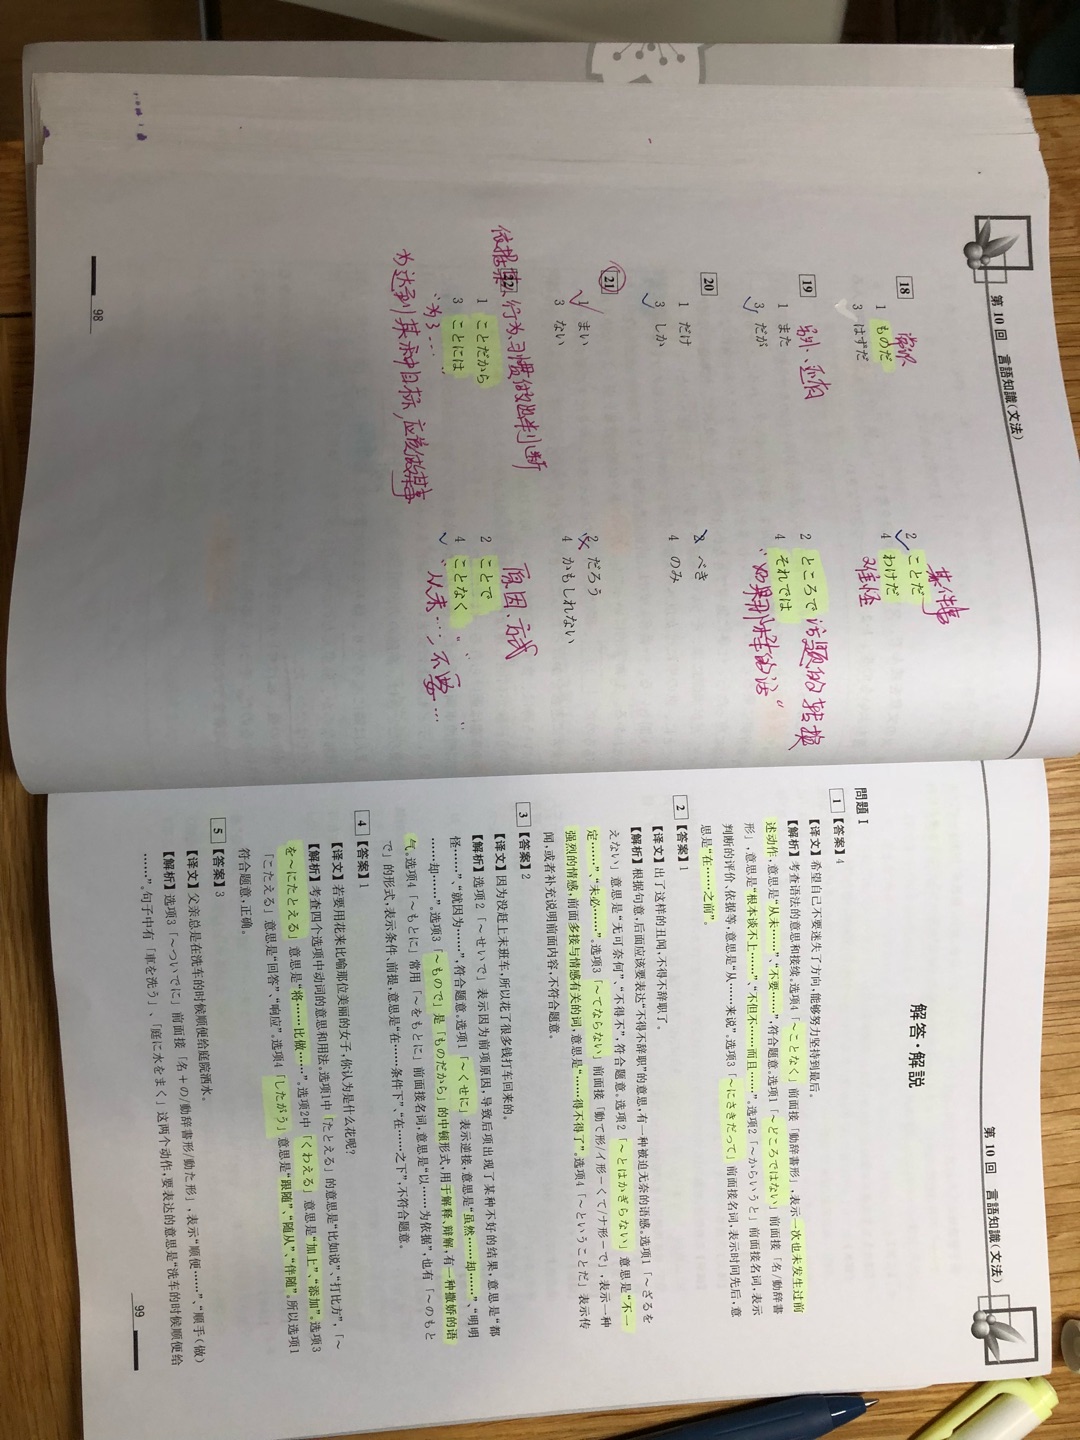 第10回 言語知識(文法)
18
常识
某件事
1 ものだ
2 ことだ
3 はずだ
4 わけだ
难怪
19
另外、还有
1 また
2 ところで 话题的转换
3 だが
4 それでは
"如果那样的话"
20
1 だけ
2 べき
3 しか
4 のみ
21
1 まい
2 だろう
3 ない
4 かもしれない
22
依据某、行为、习惯做出判断
原因、方式
1 ことだから
2 ことで
3 ことには
4 ことなく
"为了…"
"从未…","不要…"
为达到某种目标,应该做某事
98
第10回 言語知識(文法)
解答・解説
問題 I
1 【答案】4
【译文】希望自己不要迷失了方向,能够努力坚持到最后。
【解析】考查语法的意思和接续。选项4「～ことなく」前面接「動辞書形」,表示一次也未发生过前
述动作,意思是“从未……”、“不要……”,符合题意。选项1「～どころではない」前面接「名/動辞書
形」,意思是“根本谈不上……”、“不但不……而且……”。选项2「～からいうと」前面接名词,表示
判断的评价、依据等,意思是“从……来说”。选项3「～にさきだって」前面接名词,表示时间先后,意
思是“在……之前”。
2 【答案】1
【译文】出了这样的丑闻,不得不辞职了。
【解析】根据句意,后面应该要表达“不得不辞职”的意思,有一种被迫无奈的语感。选项1「～ざるを
えない」意思是“无可奈何”、“不得不”,符合题意。选项2「～とはかぎらない」意思是“不一
定……”、“未必……”。选项3「～てならない」前面接「動て形/イ形ーくて/ナ形ーで」,表示一种
强烈的情感,前面多接与情感有关的词,意思是“……得不得了”。选项4「～ということだ」表示传
闻,或者补充说明前面内容,不符合题意。
3 【答案】2
【译文】因为没赶上末班车,所以花了很多钱打车回来的。
【解析】选项2「～せいで」表示因为前项原因,导致后项出现了某种不好的结果,意思是“都
怪……”、“就因为……”,符合题意。选项1「～くせに」表示逆接,意思是“虽然……却……”、“明明
……却……”。选项3「～もので」是「ものだから」的中顿形式,用于解释、辩解,有一种撒娇的语
气。选项4「～もとに」常用「～をもとに」前面接名词,意思是“以……为依据”,也有「～のもと
で」的形式,表示条件、前提,意思是“在……条件下”、“在……之下”,不符合题意。
4 【答案】1
【译文】若要用花来比喻那位美丽的女子,你认为是什么花呢?
【解析】考查四个选项中动词的意思和用法。选项1中「たとえる」的意思是“比如说”、“打比方”,「～
を～にたとえる」意思是“将……比做……”。选项2中「くわえる」意思是“加上”、“添加”。选项3
「こたえる」意思是“回答”、“响应”。选项4「したがう」意思是“跟随”、“随从”、“伴随”。所以选项1
符合题意,正确。
5 【答案】3
【译文】父亲总是在洗车的时候顺便给庭院洒水。
【解析】选项3「～ついでに」前面接「名＋の/動辞書形/動た形」,表示“顺便……”、“顺手(做)
……”。句子中有「車を洗う」、「庭に水をまく」这两个动作,要表达的意思是“洗车的时候顺便给
99